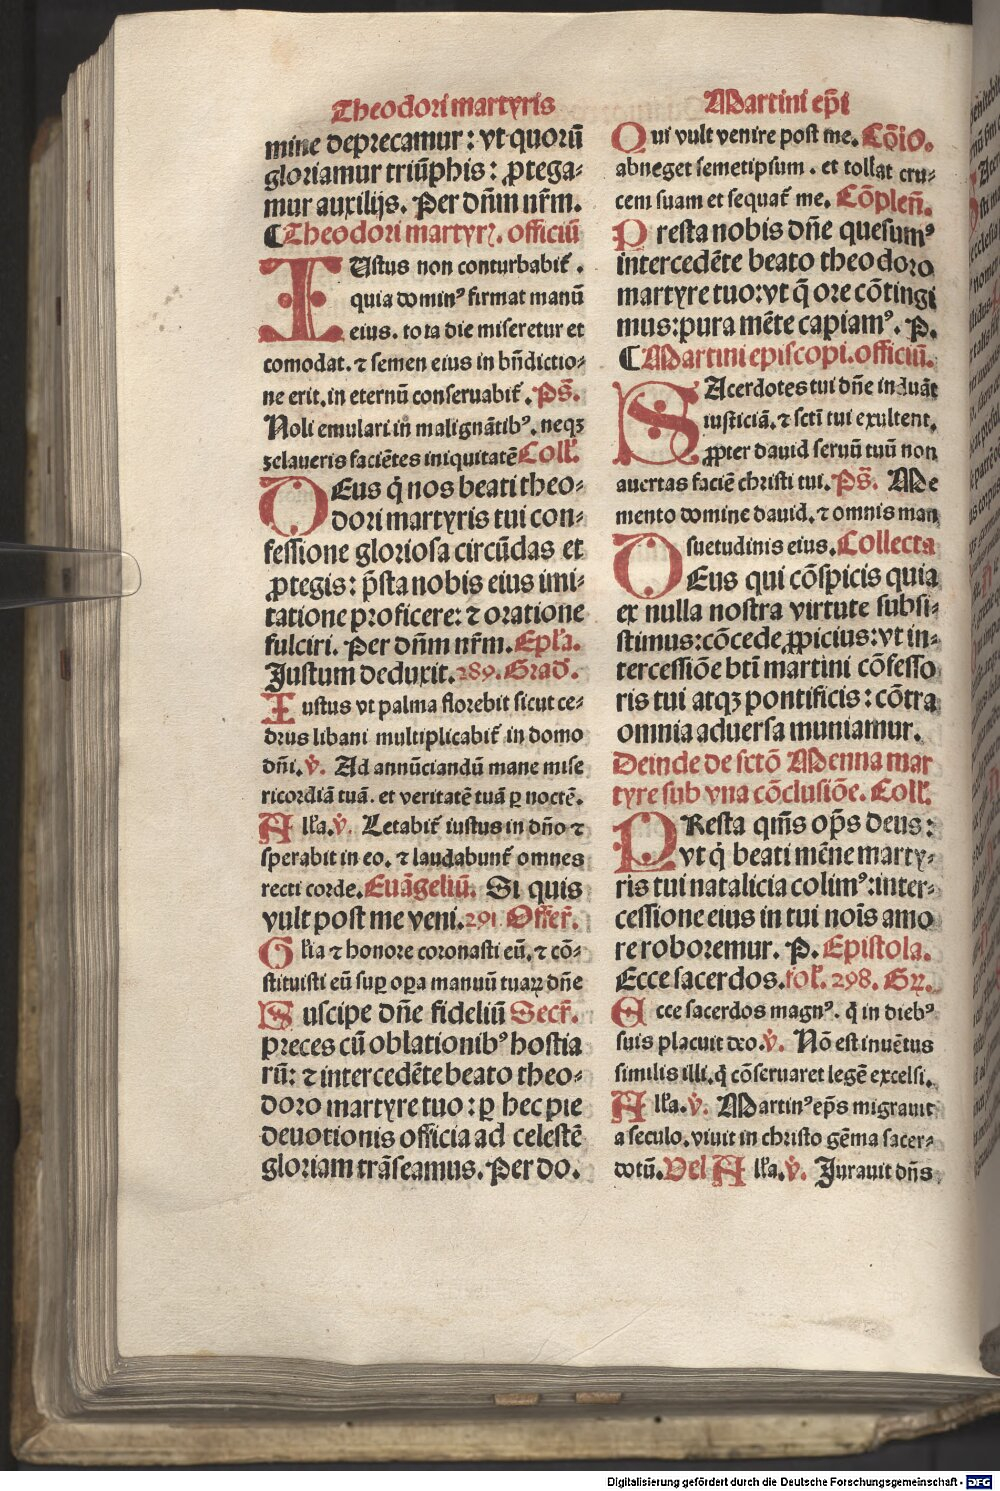 Theodori martyris
mine deprecamur: vt quorū
gloriamur triūphis: ꝓtega⸗
mur auxilijs. Per dn̄m nr̄m.
Theodori martyrꝝ. officiū
IUstus non conturbabit᷑.
quia dominꝰ firmat manū
eius. tota die miseretur et
comodat. ⁊ semen eius in bn̄dictio⸗
ne erit. in eternū conseruabit᷑. Ps̄.
Noli emulari in̄ malignātibꝰ. neqꝫ
zelaueris faciētes iniquitatē Coll̄.
DEus q̇ nos beati theo⸗
dori martyris tui con⸗
fessione gloriosa circūdas et
ꝓtegis: p̄sta nobis eius imi⸗
tatione proficere: ⁊ oratione
fulciri. Per dn̄m nr̄m. Epl̄a.
Justum deduxit. 289. Grad̄.
Iustus vt palma florebit sicut ce⸗
drus libani multiplicabit᷑ in domo
dn̄i. v̇. Ad annūciandū mane mise
ricordiā tuā. et veritatē tuā ꝑ noctē.
All̄a. v̇. Letabit᷑ iustus in dn̄o ⁊
sperabit in eo. ⁊ laudabunt᷑ omnes
recti corde. Euāgeliū. Si quis
vult post me veni. 291 Offer̄.
Gl̄ia ⁊ honore coronasti eū. ⁊ cō⸗
stituisti eū suꝑ oꝑa manuū tuaꝝ dn̄e
Suscipe dn̄e fideliū Secr̄.
preces cū oblationibꝰ hostia
rū: ⁊ intercedēte beato theo⸗
doro martyre tuo: ꝑ hec pie
deuotionis officia ad celestē
gloriam trāseamus. Per do.
Martini ep̄i
Qui vult venire post me. Cōio.
abneget semetipsum. et tollat cru⸗
cem suam et sequat᷑ me. Cōpleñ.
Presta nobis dn̄e quesumꝰ
intercedēte beato theodoro
martyre tuo: vt q̄ ore cōtingi
mus: pura mēte capiamꝰ. P.
Martini episcopi. officiū.
SAcerdotes tui dn̄e induāt
iusticiā. ⁊ sctī tui exultent.
ꝓpter dauid seruū tuū non
auertas faciē christi tui. Ps̄. Me
mento domine dauid. ⁊ omnis man
suetudinis eius. Collecta
DEus qui cōspicis quia
ex nulla nostra virtute subsi⸗
stimus: cōcede ꝓpicius: vt in⸗
tercessiōe btī martini cōfesso
ris tui atqꝫ pontificis: cōtra
omnia aduersa muniamur.
Deinde de sctō Menna mar
tyre sub vna cōclusiōe. Coll̄.
PResta qm̄s op̄s deus:
vt q̇ beati mēne marty⸗
ris tui natalicia colimꝰ: inter⸗
cessione eius in tui nois̄ amo
re roboremur. P. Epistola.
Ecce sacerdos. fol̄. 298. Gꝝ.
Ecce sacerdos magnꝰ. q̇ in diebꝰ
suis placuit deo. v̇. Nō est inuētus
similis illi. q̇ cōseruaret legē excelsi.
All̄a. v̇. Martinꝰ ep̄s migrauit
a seculo. viuit in christo gēma sacer⸗
dotū. Vel All̄a. v̇. Jurauit dn̄s
Digitalisierung gefördert durch die Deutsche Forschungsgemeinschaft - DFG